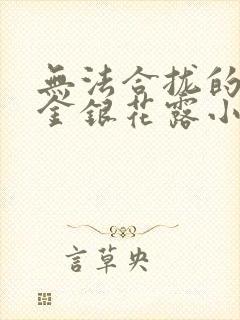 無法合拢的
金銀花露小
言草央